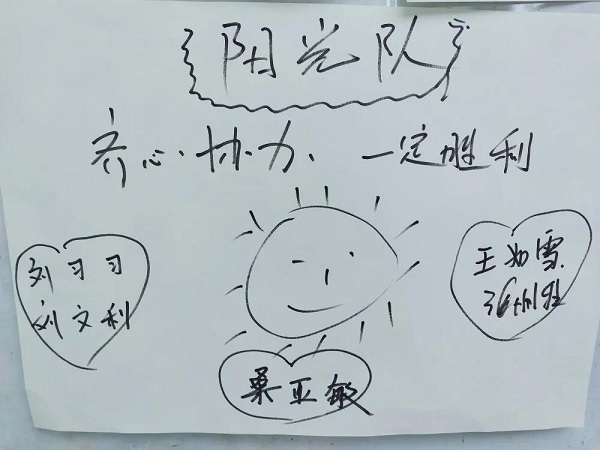 阳光队
齐心·协力、一定胜利
刘习习
刘文利
王如雪
桑亚敏